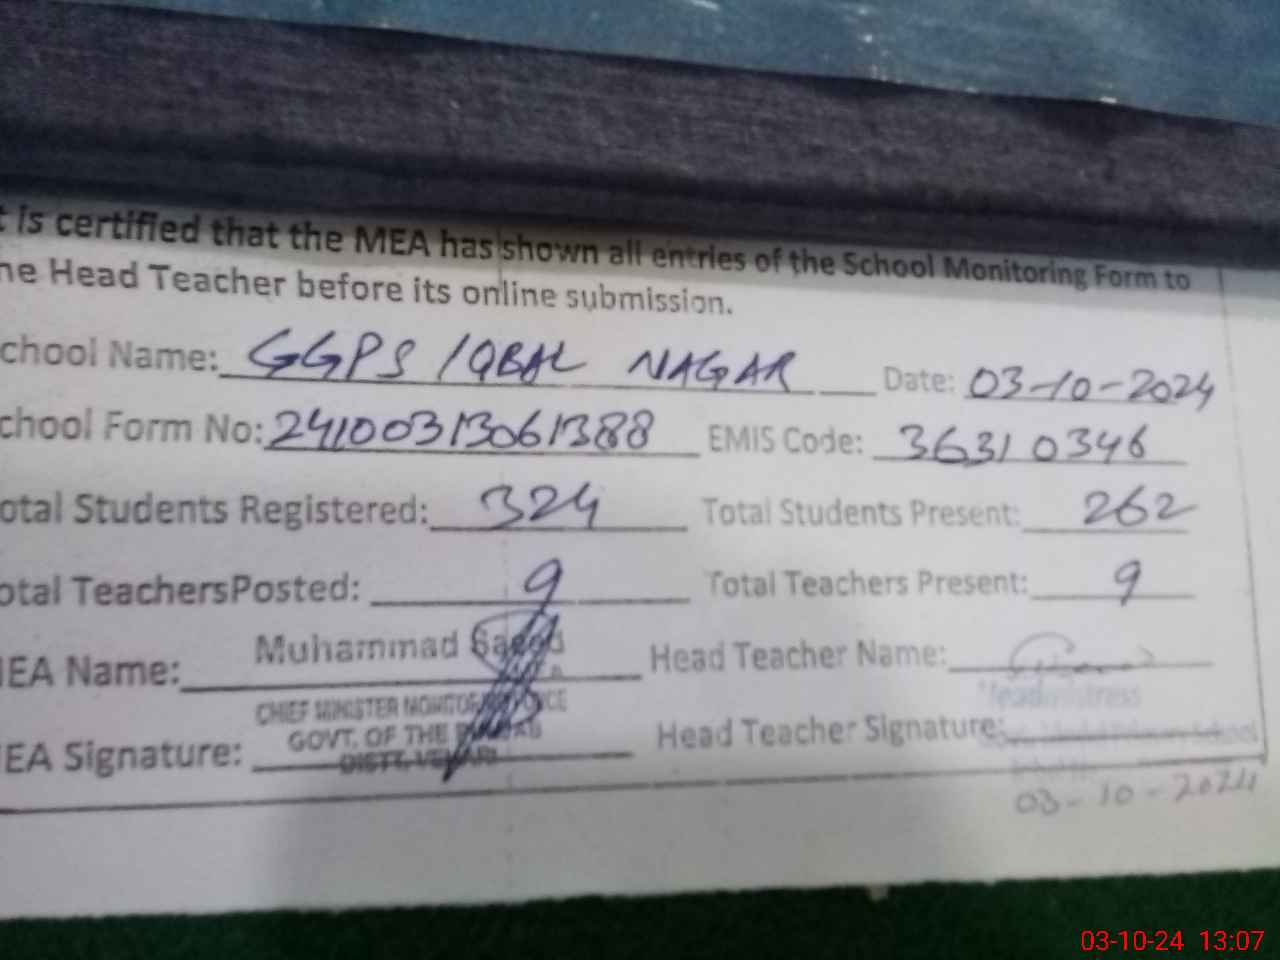 t is certified that the MEA has shown all entries of the School Monitoring Form to
he Head Teacher before its online submission.
chool Name: GGPS IQBAL NAGAR Date: 03-10-2024
chool Form No: 24100313061388 EMIS Code: 36310346
otal Students Registered: 324 Total Students Present: 262
otal TeachersPosted: 9 Total Teachers Present: 9
Muhammad Saeed
EA Name: Head Teacher Name:
CHIEF MINISTER
Headmistress
GOVT. OF THE PUNJAB
EA Signature: Head Teacher Signature:
DISTT. VEHARI
03-10-2024
03-10-24 13:07